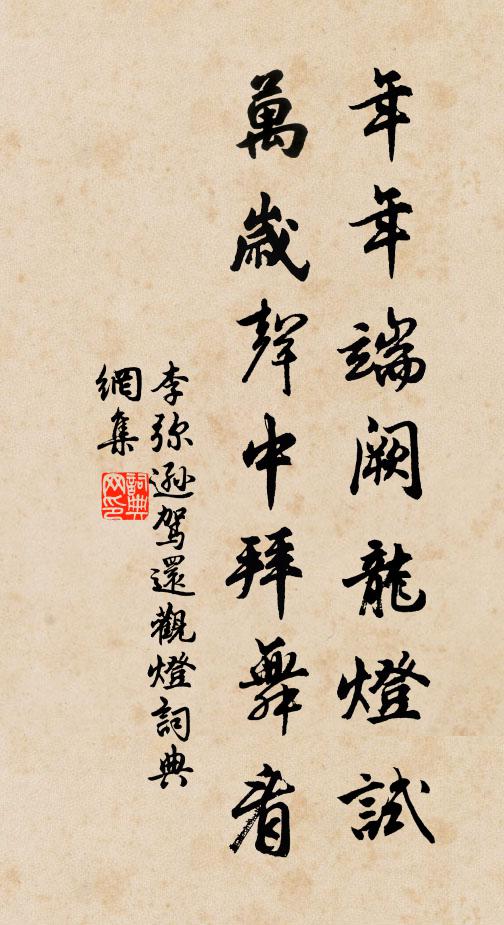 年年端闕龍燈試
萬歲聲中拜舞看
李弥遜駕還觀燈詞典
網集
詞典
网印